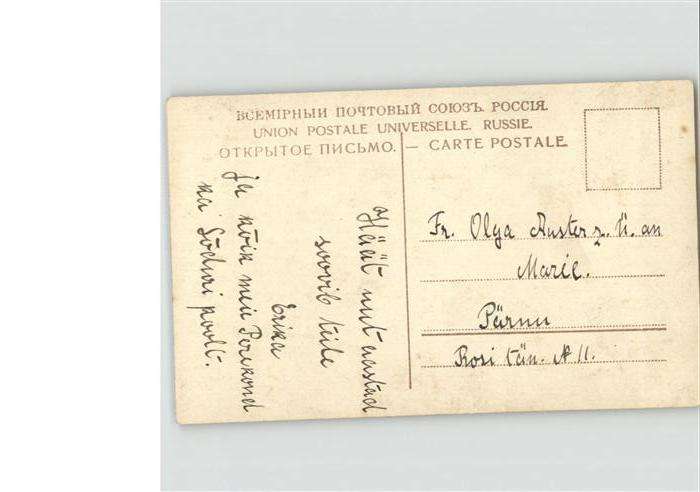 ВСЕМІРНЫЙ ПОЧТОВЫЙ СОЮЗЪ. РОССІЯ.
UNION POSTALE UNIVERSELLE. RUSSIE.
ОТКРЫТОЕ ПИСЬМО. — CARTE POSTALE.
Häät uut aastad
soovib teile
Erika
ja kõik meie Perekond
ka Sõduri poolt.
Fr. Olga Auster z. ü. an
Marie.
Pärnu
Rosi tän. № 11.